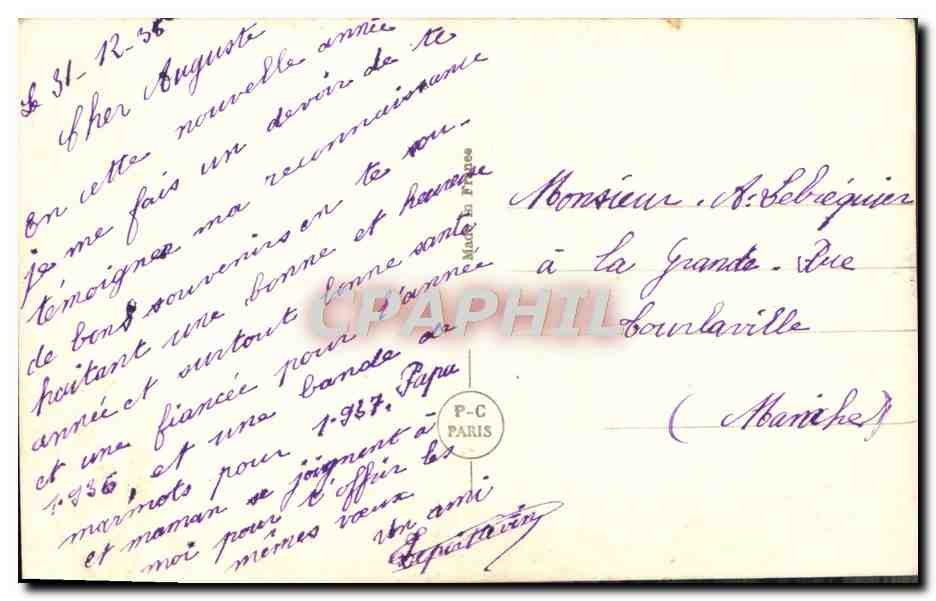 Le 31-12-35
Cher Auguste
En cette nouvelle année
je me fais un devoir de te
témoigner ma reconnaissance
de bons souvenirs en te sou-
haitant une bonne et heureuse
année et surtout bonne santé
et une fiancée pour l'année
1.936, et une bande de
marmots pour 1.937. Papa
et maman se joignent à
moi pour t'offrir les
mêmes vœux
Un ami
Made in France
P-C
PARIS
CPAPHIL
Monsieur. A. Lebréquier
à la Grande. Rue
Tourlaville
(Manche)